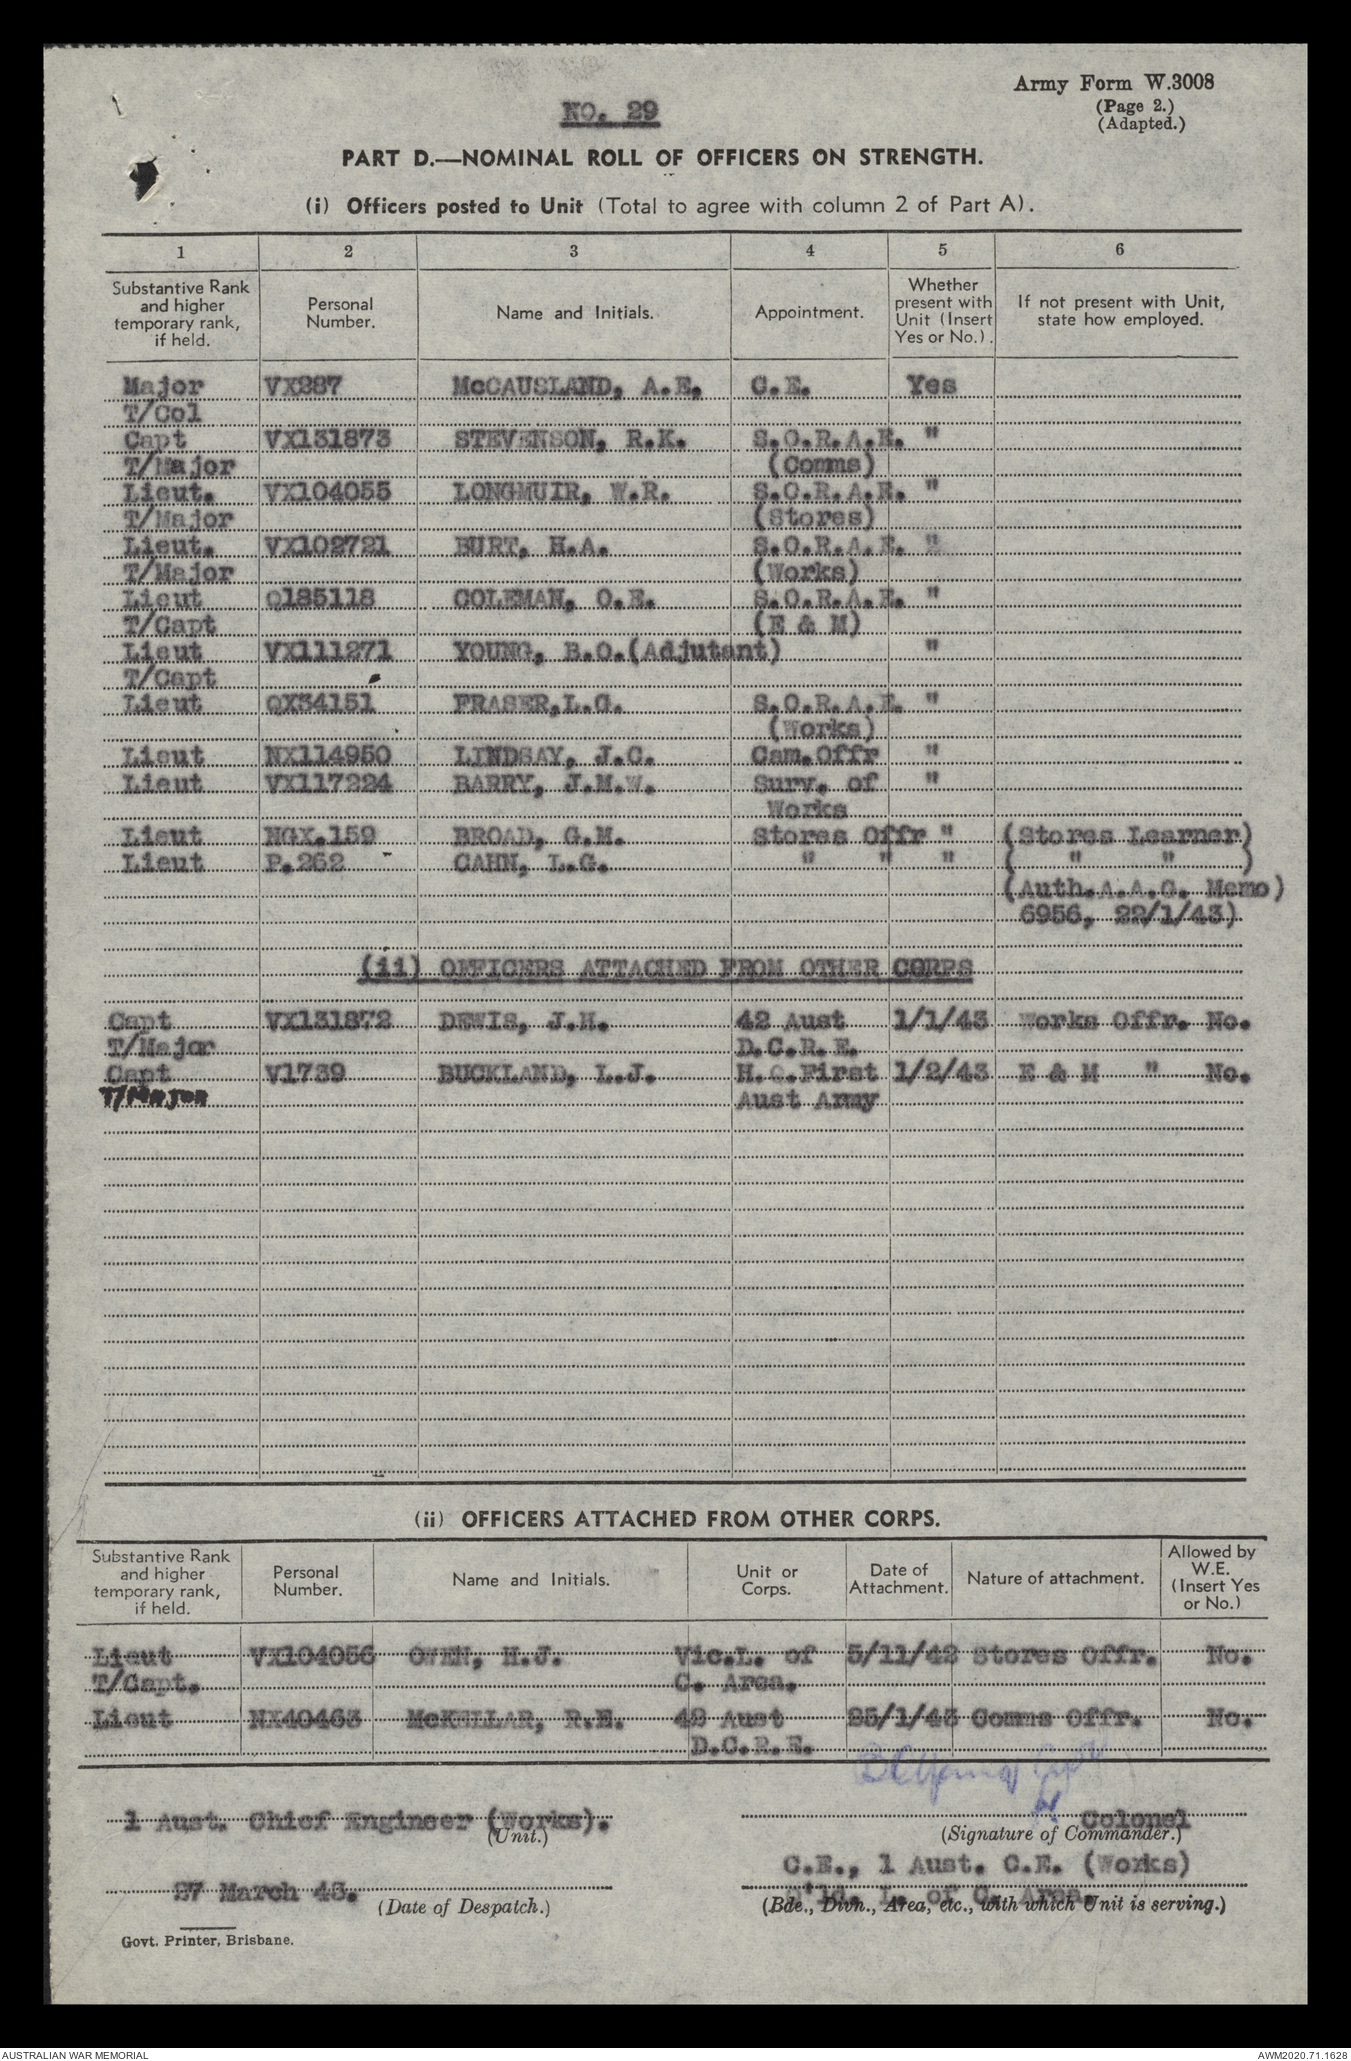 Army Form W.3008
(Page 2.)
(Adapted.)
NO. 29
PART D.—NOMINAL ROLL OF OFFICERS ON STRENGTH.
(i) Officers posted to Unit (Total to agree with column 2 of Part A).
1 2 3 4 5 6
Substantive Rank and higher temporary rank, if held. Personal Number. Name and Initials. Appointment. Whether present with Unit (Insert Yes or No.). If not present with Unit, state how employed.
Major VX287 McCAUSLAND, A.E. C.E. Yes
T/Col
Capt VX131873 STEVENSON, R.K. S.O.R.A.E. "
T/Major (Comms)
Lieut. VX104055 LONGMUIR, W.R. S.O.R.A.E. "
T/Major (Stores)
Lieut. VX102721 BURT, H.A. S.O.R.A.E. "
T/Major (Works)
Lieut Q185118 COLEMAN, O.E. S.O.R.A.E. "
T/Capt (E & M)
Lieut VX111271 YOUNG, B.C.(Adjutant) "
T/Capt
Lieut QX34151 FRASER,L.G. S.O.R.A.E. "
(Works)
Lieut NX114950 LINDSAY, J.C. Cam.Offr "
Lieut VX117224 BARRY, J.M.W. Surv. of "
Works
Lieut NGX.159 BROAD, G.M. Stores Offr " (Stores Learner)
Lieut P.262 CAHN, L.G. " " " ( " " )
(Auth.A.A.G. Memo)
6956, 22/1/43)
(ii) OFFICERS ATTACHED FROM OTHER CORPS
Capt VX131872 DEWIS, J.H. 42 Aust 1/1/43 Works Offr. No.
T/Major D.C.R.E.
Capt V1739 BUCKLAND, L.J. H.Q.First 1/2/43 E & M " No.
T/Major Aust Army
(ii) OFFICERS ATTACHED FROM OTHER CORPS.
Substantive Rank and higher temporary rank, if held. Personal Number. Name and Initials. Unit or Corps. Date of Attachment. Nature of attachment. Allowed by W.E. (Insert Yes or No.)
Lieut VX104056 OWEN, H.J. Vic.L. of 5/11/42 Stores Offr. No.
T/Capt. C. Area.
Lieut NX40463 McKELLAR, R.E. 42 Aust 25/1/43 Comms Offr. No.
D.C.R.E.
1 Aust. Chief Engineer (Works). Colonel
(Unit.) (Signature of Commander.)
C.E., 1 Aust. C.E. (Works)
27 March 43. Q'ld. L. of C. Area.
(Date of Despatch.) (Bde., Divn., Area, etc., with which Unit is serving.)
Govt. Printer, Brisbane.
AUSTRALIAN WAR MEMORIAL AWM2020.71.1628